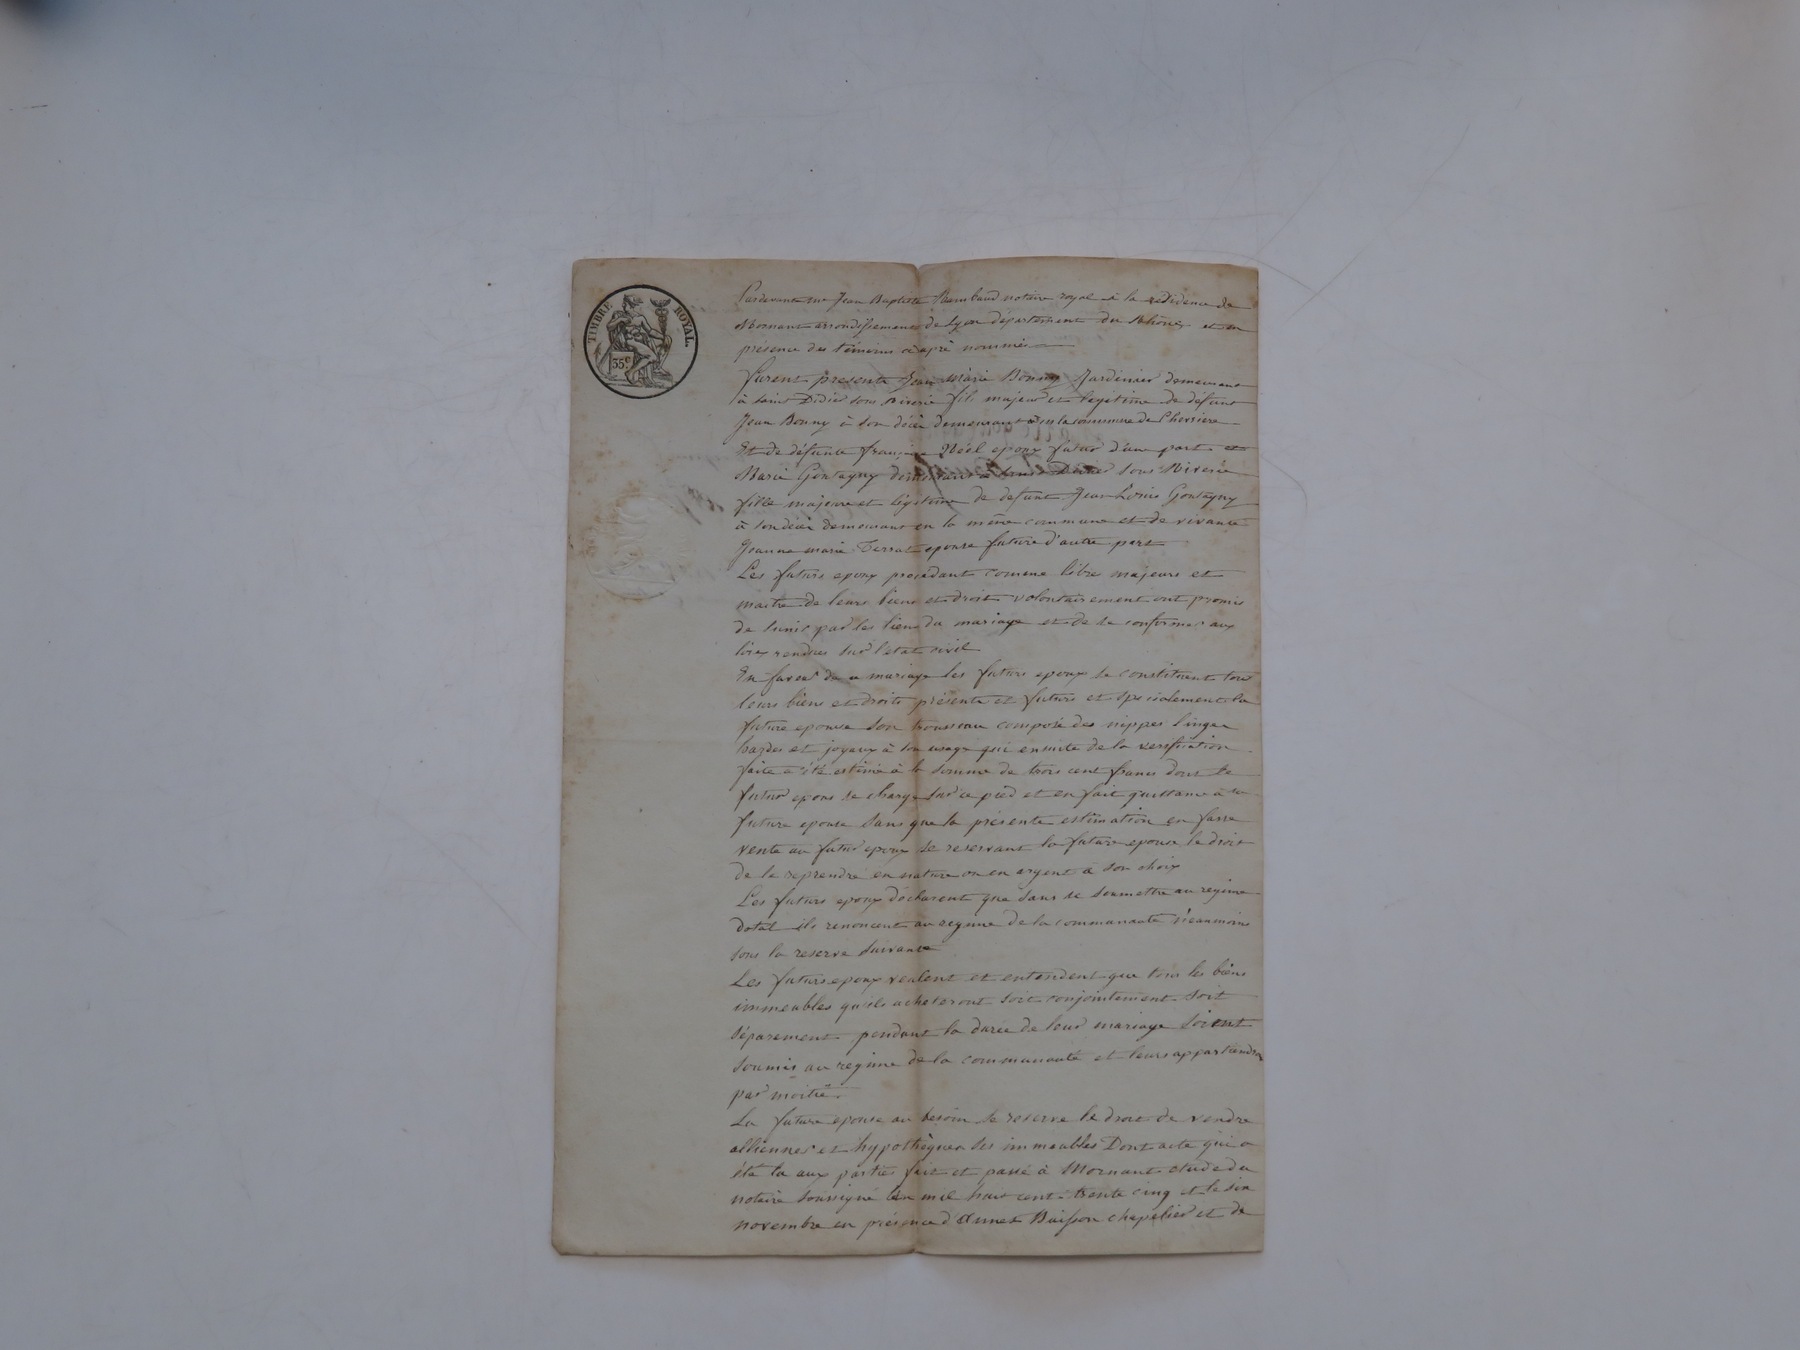 TIMBRE ROYAL.
35c.
Pardevant me Jean Baptiste Rambaud notaire royal à la residence de
Mornant arrondissement de Lyon département du Rhône et en
présence des témoins ci après nommés
furent presents Jean Marie Bonny Jardinier demeurant
à saint Didier sous Riverie fils majeur et legitime de défunt
Jean Bonny à son décès demeurant en la commune de
Et de défunte françoise epoux futur d'une part et
Marie Gontagny demeurant à saint Didier sous Riverie
fille majeure et légitime de defunt Jean Louis Gontagny
à son décès demeurant en la même commune et de vivante
Jeanne marie Terrat epouse future d'autre part
Les futurs epoux procédant comme libre majeurs et
maitre de leurs biens et droits volontairement ont promis
de sunir par les liens du mariage et de se conformer aux
loix rendues sur l'etat civil
En faveur de ce mariage les futurs epoux se constituent tous
leurs biens et droits présents et futurs et spécialement la
future epouse son trousseau composé des nippes linge
hardes et joyaux à son usage qui ensuite de la verification
faite a été estimé à la somme de trois cent francs dont le
futur epoux se charge sur ce pied et en fait quittance à sa
future epouse sans que la présente estimation en fasse
vente au futur epoux se reservant la future epouse le droit
de le reprendre en nature ou en argent à son choix
Les futurs epoux déclarent que sans se soumettre au regime
dotal ils renoncent au regime de la communauté néanmoins
sous la reserve suivante
Les futurs epoux veulent et entendent que tous les biens
immeubles qu'ils acheteront soit conjointement soit
séparement pendant la durée de leur mariage soient
soumis au regime de la communauté et leurs appartiendra
par moitié.
La future epouse au besoin se reserve le droit de vendre
alliener et hypothéquer ses immeubles Dont acte qui a
été lu aux parties fait et passé à Mornant etude du
notaire soussigné l'an mil huit cent trente cinq et le six
novembre en présence d'Annet Buisson chapelier et de